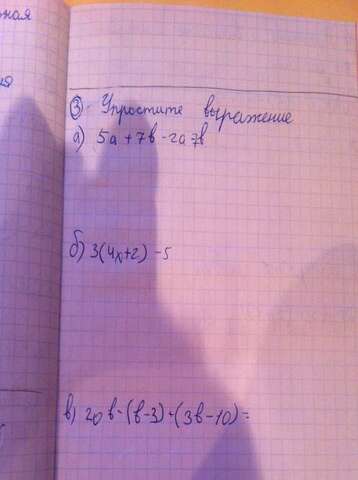 жная
ия
③. Упростите выражение
а) 5а + 7в - 2а 7в
б) 3(4х+2) - 5
в) 20в - (в-3) + (3в-10)=